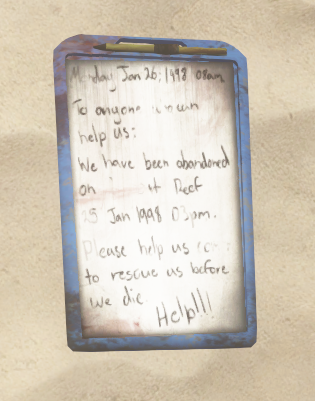 Monday Jan 26; 1998 08am
To anyone can
help us:
We have been abandoned
on Reef
25 Jan 1998 03pm.
Please help us
to rescue us before
we die.
Help!!!